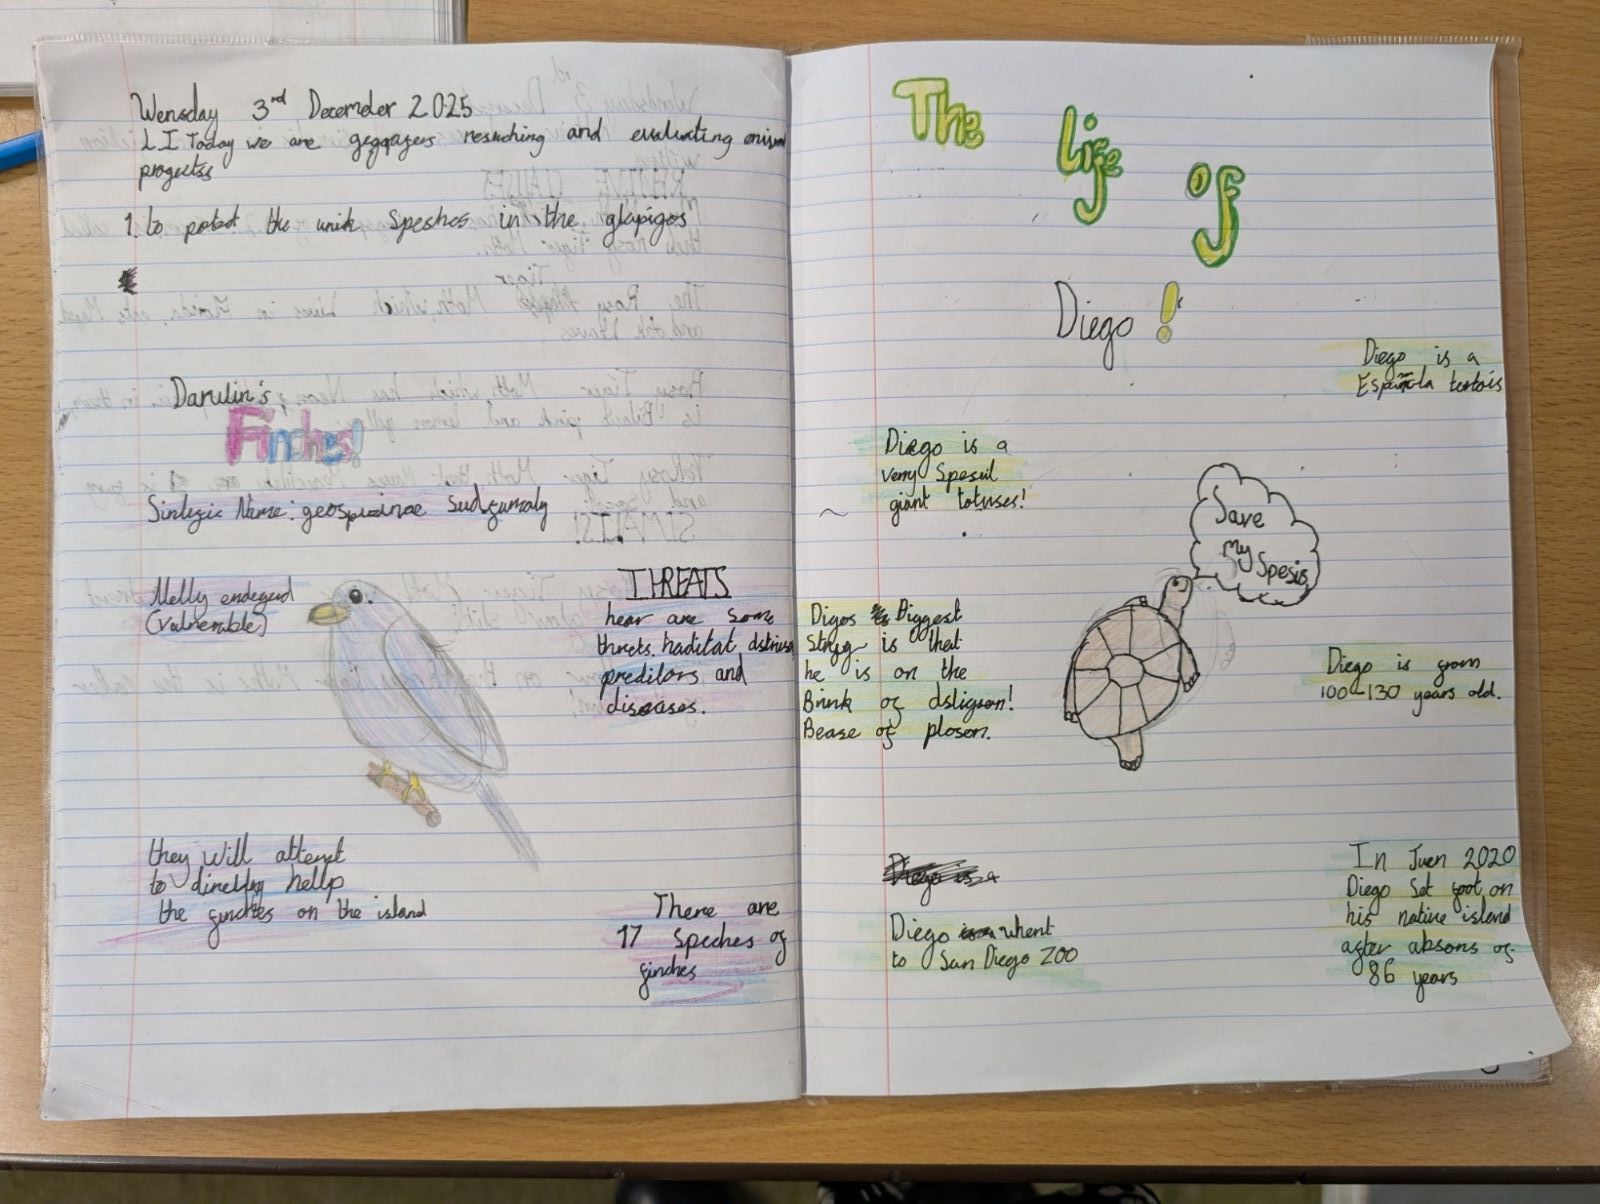 Wensday 3rd December 2025
L I Today we are geggagers resuching and evaluating
progectss
1. to potect the unik Speshes in the glapigos
Darulin's
Finches!
Sintegic Name: geospizinae Sudgumaly
Melly endegerd
(vulnerable)
THREATS
hear are some
threts. haditat
preditors and
diseases.
they will attempt
to directly hellp
the finches on the island
There are
17 Speches of
finches
The
Life
of
Diego !
Diego is a
Española tortois
Diego is a
verry Spesuil
giant totuses!
Save
My
Spesis
Digos Biggest
Strgg is that
he is on the
Brink of dstigson!
Bease of ploson.
Diego is from
100-130 years old.
Diego is a
Diego whent
to San Diego ZOO
In Juen 2020
Diego Set foot on
his native island
after absons of
86 years